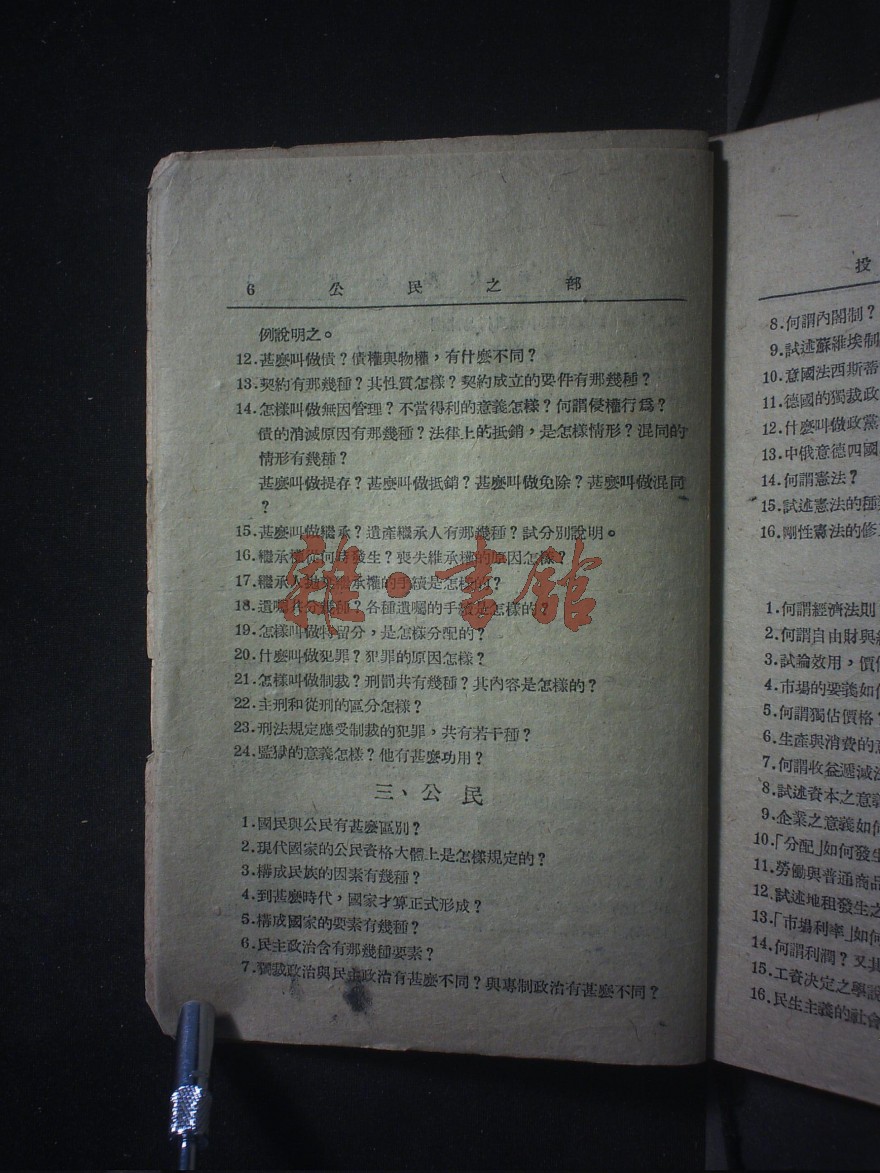 6 公民之部
例說明之。
12.甚麼叫做債？債權與物權，有什麼不同？
13.契約有那幾種？其性質怎樣？契約成立的要件有那幾種？
14.怎樣叫做無因管理？不當得利的意義怎樣？何謂侵權行爲？
債的消滅原因有那幾種？法律上的抵銷，是怎樣情形？混同的
情形有幾種？
甚麼叫做提存？甚麼叫做抵銷？甚麼叫做免除？甚麼叫做混同
？
15.甚麼叫做繼承？遺產繼承人有那幾種？試分別說明。
16.繼承權從何時發生？喪失繼承權的原因怎樣？
17.繼承人拋棄繼承權的手續是怎樣的？
18.遺囑共分幾種？各種遺囑的手續是怎樣的？
19.怎樣叫做特留分，是怎樣分配的？
20.什麼叫做犯罪？犯罪的原因怎樣？
21.怎樣叫做制裁？刑罰共有幾種？其內容是怎樣的？
22.主刑和從刑的區分怎樣？
23.刑法規定應受制裁的犯罪，共有若干種？
24.監獄的意義怎樣？他有甚麼功用？
三、公民
1.國民與公民有甚麼區別？
2.現代國家的公民資格大體上是怎樣規定的？
3.構成民族的因素有幾種？
4.到甚麼時代，國家才算正式形成？
5.構成國家的要素有幾種？
6.民主政治含有那幾種要素？
7.獨裁政治與民主政治有甚麼不同？與專制政治有甚麼不同？
雜·書館
投
8.何謂內閣制？
9.試述蘇維埃制
10.意國法西斯蒂
11.德國的獨裁政
12.什麼叫做政黨
13.中俄意德四國
14.何謂憲法？
15.試述憲法的種
16.剛性憲法的修
1.何謂經濟法則
2.何謂自由財與
3.試論效用，價
4.市場的要義如
5.何謂獨佔價格？
6.生產與消費的意
7.何謂收益遞減法
8.試述資本之意義
9.企業之意義如何
10.「分配」如何發生
11.勞働與普通商品
12.試述地租發生之
13.「市場利率」如何
14.何謂利潤？又其
15.工資決定之學說
16.民生主義的社會